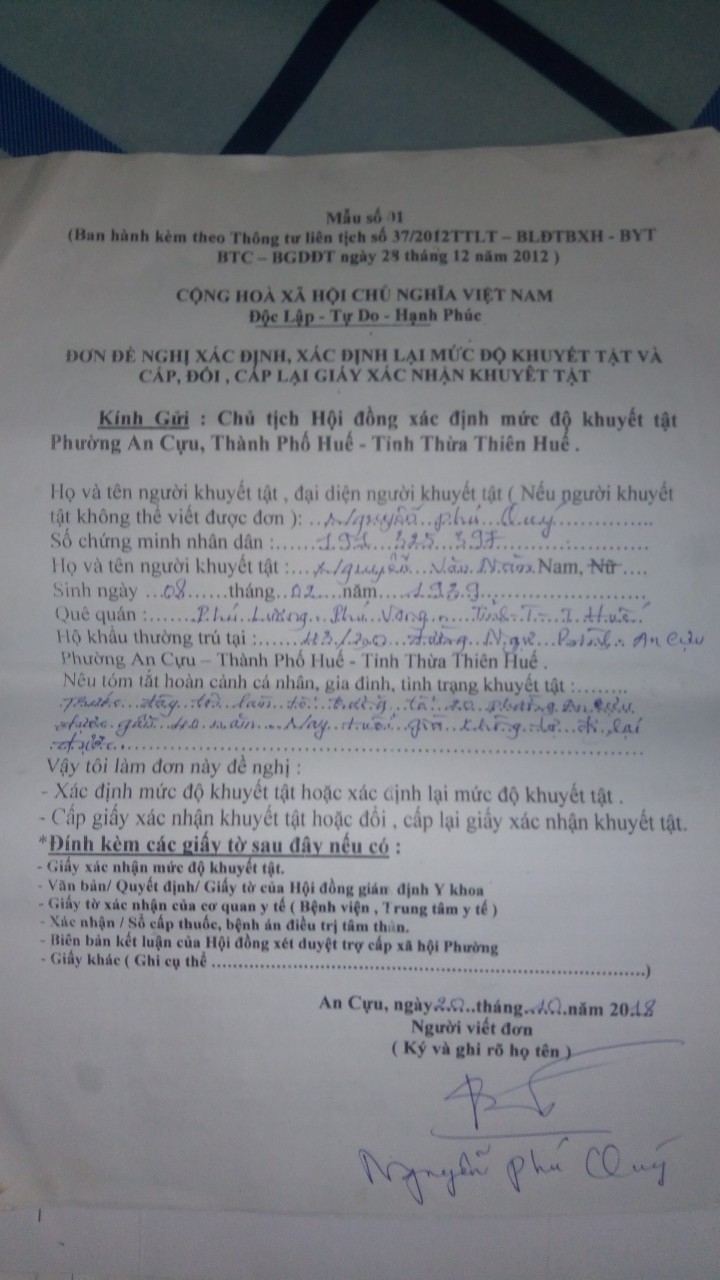 Mẫu số 01
(Ban hành kèm theo Thông tư liên tịch số 37/2012TTLT – BLĐTBXH - BYT
BTC – BGDĐT ngày 28 tháng 12 năm 2012 )
CỘNG HOÀ XÃ HỘI CHỦ NGHĨA VIỆT NAM
Độc Lập - Tự Do - Hạnh Phúc
ĐƠN ĐỀ NGHỊ XÁC ĐỊNH, XÁC ĐỊNH LẠI MỨC ĐỘ KHUYẾT TẬT VÀ
CẤP, ĐỔI , CẤP LẠI GIẤY XÁC NHẬN KHUYẾT TẬT
Kính Gửi : Chủ tịch Hội đồng xác định mức độ khuyết tật
Phường An Cựu, Thành Phố Huế - Tỉnh Thừa Thiên Huế .
Họ và tên người khuyết tật , đại diện người khuyết tật ( Nếu người khuyết
tật không thể viết được đơn ): Nguyễn Phú Quý
Số chứng minh nhân dân : 191 325 397
Họ và tên người khuyết tật : Nguyễn Văn Nam, Nữ
Sinh ngày 08 tháng 02 năm 1939
Quê quán : Phú Lương Phú Vang Tỉnh T. T Huế
Hộ khẩu thường trú tại : Đường An Cựu
Phường An Cựu – Thành Phố Huế - Tỉnh Thừa Thiên Huế .
Nêu tóm tắt hoàn cảnh cá nhân, gia đình, tình trạng khuyết tật :
Trước đây tôi làm tổ trưởng tổ 20 phường An Cựu
được gần 40 năm Nay tuổi già không đi lại
được
Vậy tôi làm đơn này đề nghị :
- Xác định mức độ khuyết tật hoặc xác định lại mức độ khuyết tật .
- Cấp giấy xác nhận khuyết tật hoặc đổi , cấp lại giấy xác nhận khuyết tật.
*Đính kèm các giấy tờ sau đây nếu có :
- Giấy xác nhận mức độ khuyết tật.
- Văn bản/ Quyết định/ Giấy tờ của Hội đồng gián định Y khoa
- Giấy tờ xác nhận của cơ quan y tế ( Bệnh viện , Trung tâm y tế )
- Xác nhận / Sổ cấp thuốc, bệnh án điều trị tâm thần.
- Biên bản kết luận của Hội đồng xét duyệt trợ cấp xã hội Phường
- Giấy khác ( Ghi cụ thể ....)
An Cựu, ngày 20 tháng 10 năm 2018
Người viết đơn
( Ký và ghi rõ họ tên )
Nguyễn Phú Quý